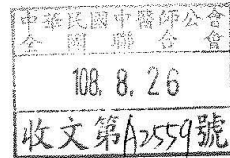 中華民國中醫師公會
全國聯合會
108. 8. 26
收文第A2559號